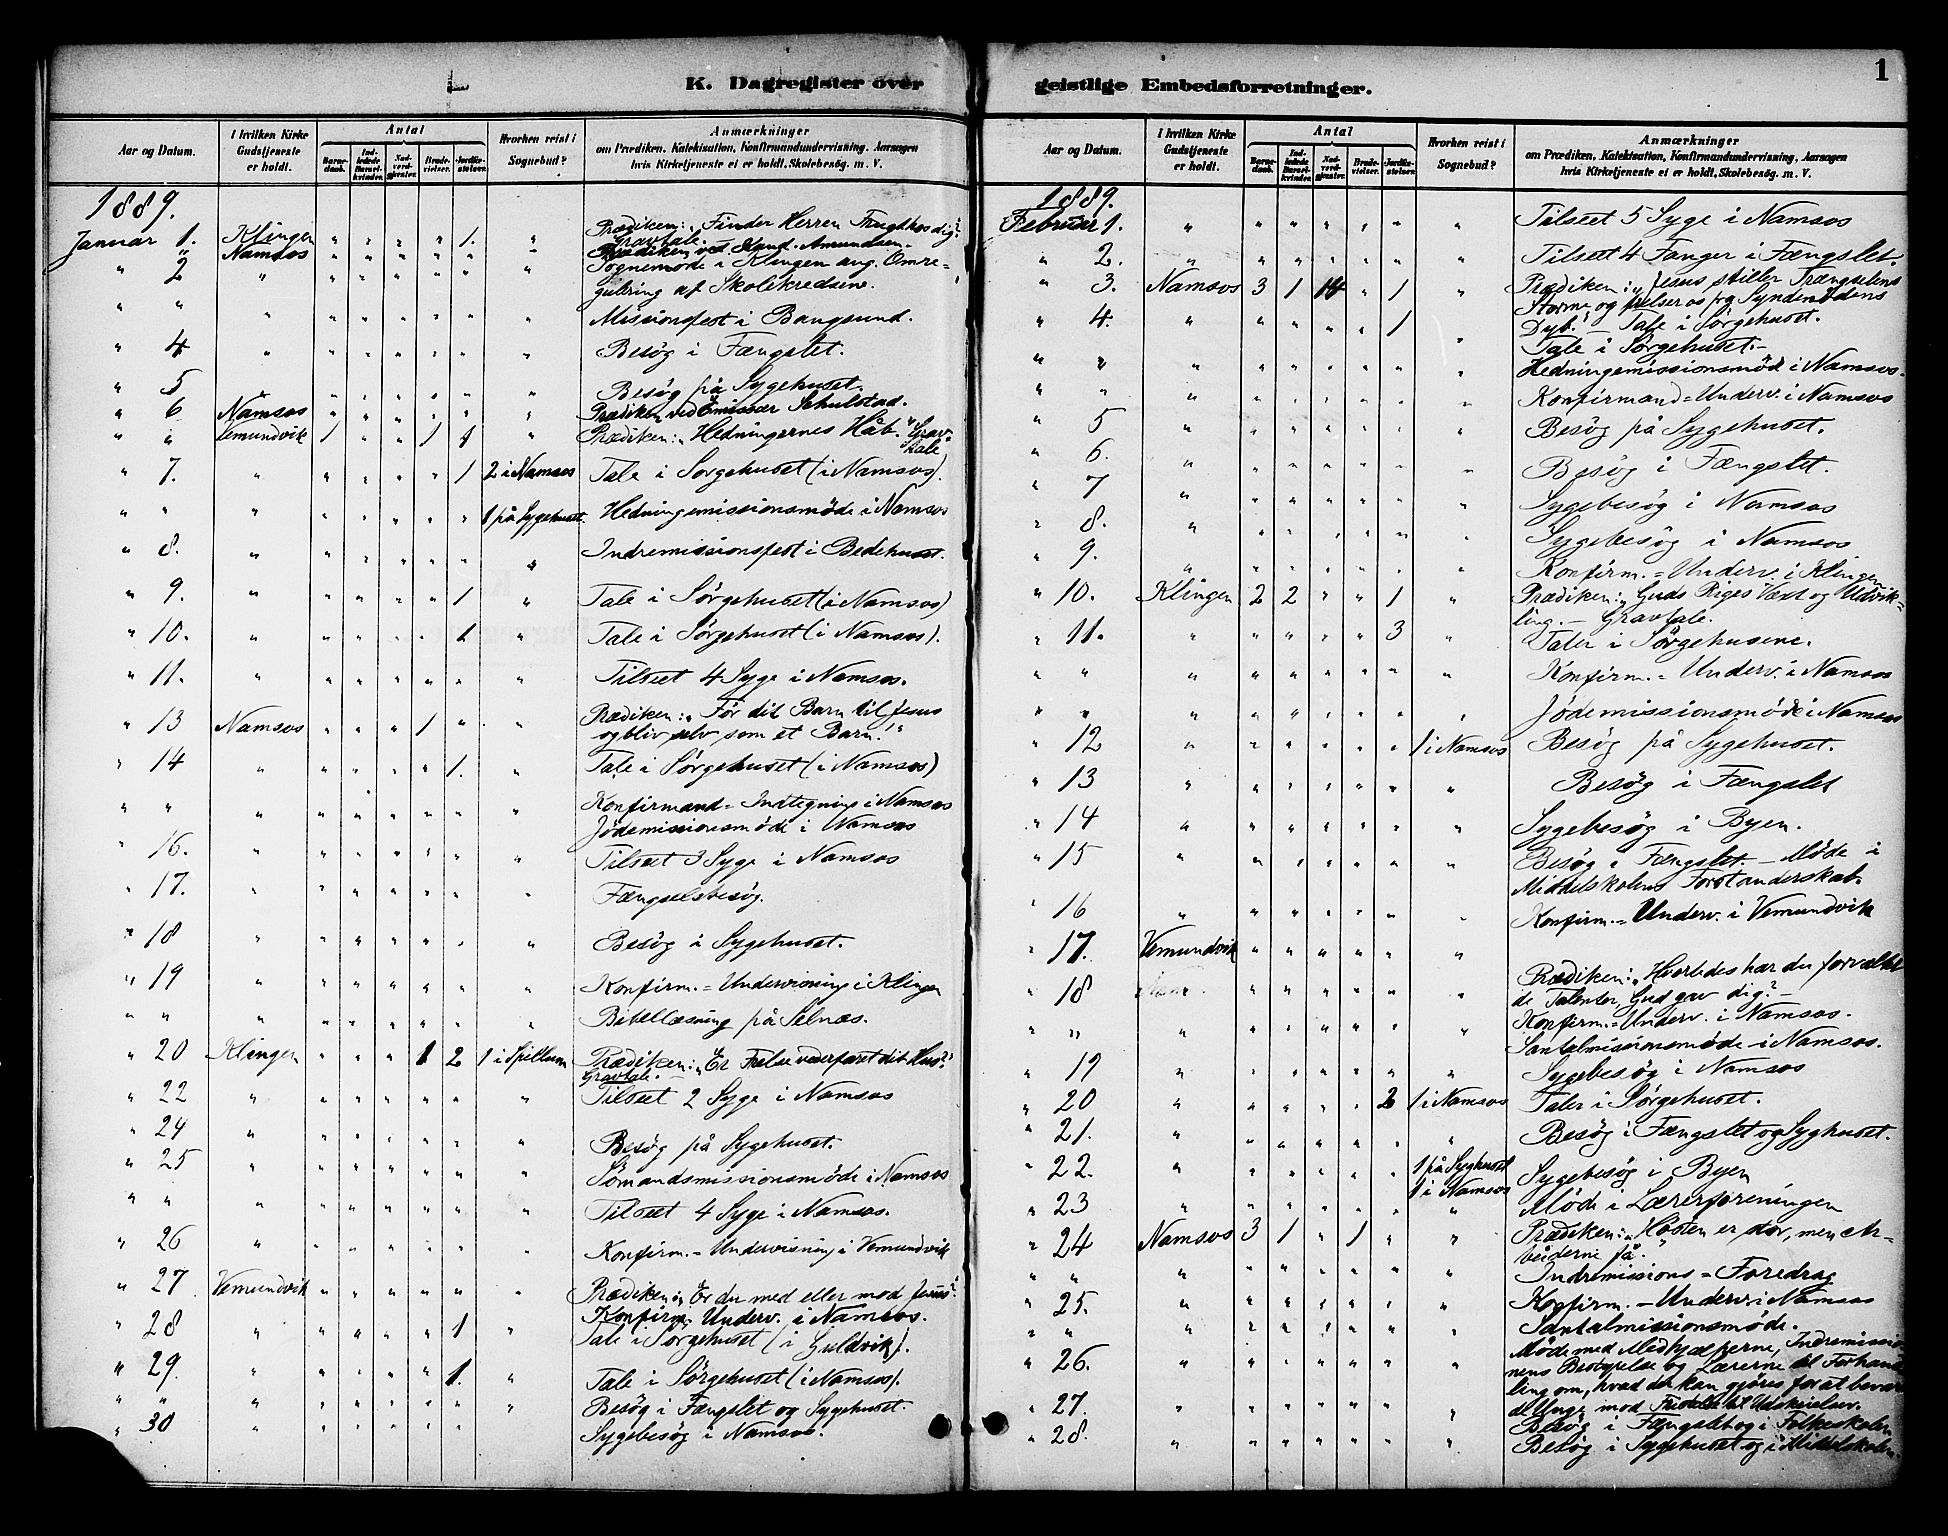 K. Dagregister over
Aar og Datum. I hvilken Kirke Gudstjeneste er holdt. Antal Barnedaab. Indledede Barselkvinder. Nadverdgjester. Brudevielser. Jordfæstelser. Hvorhen reist i Sognebud? Anmærkninger om Prædiken, Katekisation, Konfirmandundervisning, Aarsagen hvis Kirketjeneste ei er holdt, Skolebesøg, m. V.
1889.
Januar 1. Klingen " " " " 1. " Prædiken: "Finder Herren Frugt hos dig?"
Gravtale.
" " Namsos " " " " " " Prædiken ved Amundsen
" 2 " " " " " " " Sognemøde i Klingen ang. Omre-
gulering af Skolekredsene.
" " " " " " " " " Missionsfest i Bangsund.
" 4 " " " " " " " Besøg i Fængslet.
" 5 " " " " " " " Besøg på Sygehuset.
" 6 Namsos " " " " " " Prædiken ved Emissær Schulstad.
" " Vemundvik 1 " " 1 1 " Prædiken: "Hedningernes Håb." Grav-
tale
" 7. " " " " " 1 2 i Namsos Tale i Sørgehuset (i Namsos).
" " " " " " " " 1 på Sygehuset. Hedningemissionsmøde i Namsos
" 8. " " " " " " " Indremissionsfest i Bedehuset.
" 9. " " " " " 1 " Tale i Sørgehuset (i Namsos)
" 10. " " " " " 1 " Tale i Sørgehuset (i Namsos).
" 11. " " " " " " " Tilseet 4 Syge i Namsos.
" 13 Namsos " " " 1 " " Prædiken: "Før dit Barn til Jesus
og bliv selv som et Barn!"
" 14 " " " " " 1. " Tale i Sørgehuset (i Namsos)
" " " " " " " " " Konfirmand= Indtegning i Namsos
Jødemissionsmøde i Namsos
" 16. " " " " " " " Tilseet 3 Syge i Namsos
" 17. " " " " " " " Fængselsbesøg.
" 18 " " " " " " " Besøg i Sygehuset.
" 19 " " " " " " " Konfirm.= Undervisning i Klingen
" " " " " " " " " Bibellæsning på Selnæs.
" 20 Klingen " " " 1 2 1 i Spillum Prædiken: "Er Frelse vederfaret dit Hus?"
Gravtale.
" 22 " " " " " " " Tilseet 2 Syge i Namsos
" 24 " " " " " " " Besøg på Sygehuset.
" 25 " " " " " " " Sømandsmissionsmøde i Namsos
" " " " " " " " " Tilseet 4 Syge i Namsos.
" 26 " " " " " " " Konfirm.= Undervisning i Vemundvik
" 27 Vemundvik " " " " " " Prædiken: "Er du med eller mod Jesus?"
" 28 " " " " " 1 " Konfirm. Underv. i Namsos.
Tale i Sørgehuset (i Guldvik).
" 29. " " " " " 1. " Tale i Sørgehuset (i Namsos).
" " " " " " " " " Besøg i Fængslet og Sygehuset.
" 30 " " " " " " Sygebesøg i Namsos.
geistlige Embedsforretninger. 1
Aar og Datum. I hvilken Kirke Gudstjeneste er holdt. Antal Barnedaab. Indledede Barselkvinder. Nadverdgjester. Brudevielser. Jordfæstelser. Hvorhen reist i Sognebud? Anmærkninger om Prædiken, Katekisation, Konfirmandundervisning, Aarsagen hvis Kirketjeneste ei er holdt, Skolebesøg, m. V.
1889.
Februar 1. " " " " " " " Tilseet 5 Syge i Namsos
" 2. " " " " " " " Tilseet 4 Fanger i Fængslet.
" 3. Namsos 3 1 14 " 1 " Prædiken: "Jesus stiller Trængselens
Storme og frelser os fra Syndenødens
Dyb." - Tale i Sørgehuset.
" 4. " " " " " 1 " Tale i Sørgehuset. -
" " " " " " " " " Hedningemissionsmøde i Namsos.
" " " " " " " " " Konfirmand= Underv. i Namsos
" 5 " " " " " " " Besøg på Sygehuset.
" 6. " " " " " " " Besøg i Fængslet.
" 7 " " " " " " " Sygebesøg i Namsos
" 8. " " " " " " " Sygebesøg i Namsos
" 9. " " " " " " " Konfirm.= Underv. i Klingen
" 10. Klingen 2 2 " " 1 " Prædiken: "Guds Riges Væxt og Udvik=
ling. - Gravtale.
" 11. " " " " " 3 " Taler i Sørgehusene.
" " " " " " " " Konfirm.= Underv. i Namsos
" " " " " " " " Jødemissionsmøde i Namsos
" 12 " " " " " " 1 i Namsos Besøg på Sygehuset.
" 13 " " " " " " " Besøg i Fængslet
" 14 " " " " " " " Sygebesøg i Byen.
" 15 " " " " " " " Besøg i Fængslet. - Møde i
Middelskolens Forstanderskab.
" 16 " " " " " " " Konfirm.= Underv. i Vemundvik
" 17. Vemundvik " " " " " " Prædiken: "Hvorledes har du forvaltet
de Talenter, Gud gav dig?" -
" 18 " " " " " " " Konfirm.= Underv. i Namsos.
" " " " " " " " " Santalmissionsmøde i Namsos.
" 19 " " " " " " " Sygebesøg i Namsos
" 20 " " " " " 2 1 i Namsos Taler i Sørgehuset.
" 21. " " " " " " " Besøg i Fængslet og Syghuset.
" 22. " " " " " " 1 på Syghuset Sygebesøg i Byen
1 i Namsos
" 23 " " " " " " " Møde i Lærerforeningen
" 24 Namsos 3 1 " 1 " " Prædiken: "Høsten er stor, men Ar-
beiderne få."
" " " " " " " " " Indremissions= Foredrag
" 25. " " " " " " " Konfirm.- Underv. i Namsos
" " " " " " " " Santalmissionsmøde.
" 26. " " " " " " " Møde med Medhjælperne, Indremissio-
nens Bestyrelse og Lærerne til Forhand-
ling om, hvad der kan gjøres for at bevare
de Unge mod Fristelser til Udskeielser.
" 27. " " " " " " " Besøg i Fængslet og i Folkeskolen
" 28. " " " " " " " Besøg i Sygehuset og i Middelskolen